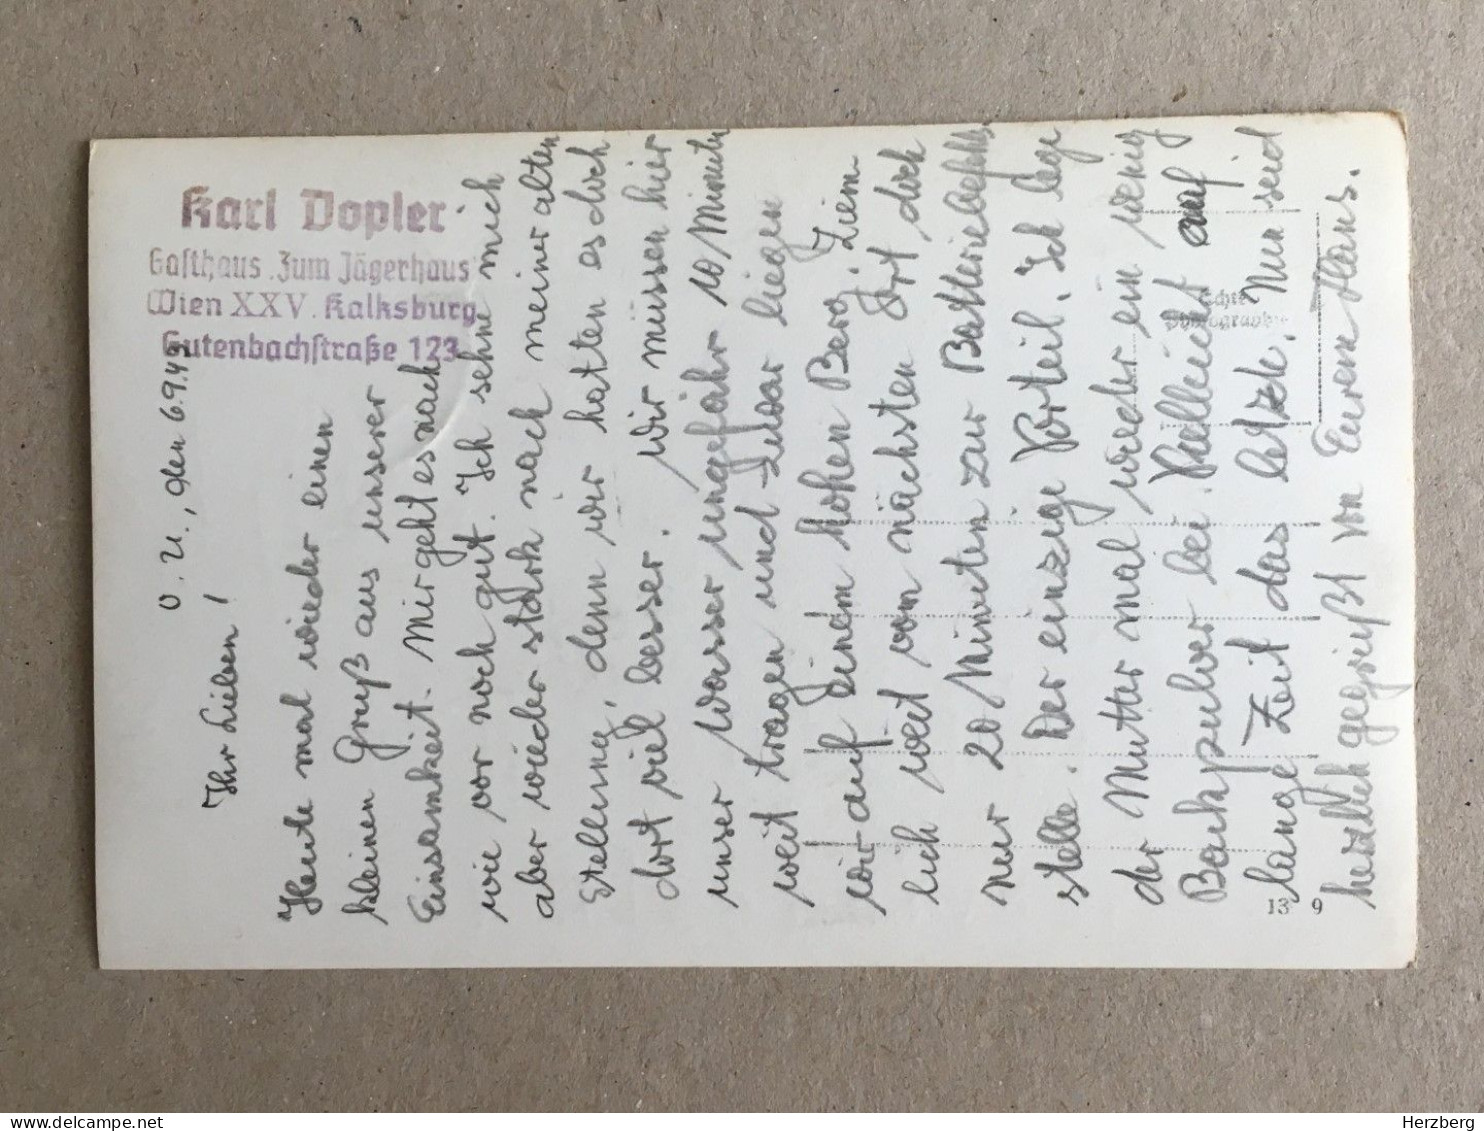 Karl Dopler
Gasthaus „Zum Jägerhaus"
Wien XXV. Kalksburg
Gutenbachstraße 123
O. U., den 6.9.42
Ihr Lieben!
Heute mal wieder einen
kleinen Gruß aus unserer
Einsamkeit. Mir geht es nach
wie vor noch gut. Ich sehne mich
aber wieder stark nach meiner alten
Stellung, denn wir hatten es doch
dort viel besser. Wir müssen hier
unser Wasser ungefähr 10 Minuten
weit tragen und zwar liegen
wir auf einem hohen Berg. Ziem-
lich weit vom nächsten Ort doch
nur 20 Minuten zur Batteriebefehls-
stelle. Der einzige Vorteil. Ich lege
der Mutter mal wieder ein wenig
Backpulver bei. Vielleicht auf
lange Zeit das letzte. Nun seid
herzlich gegrüßt von Eurem Hans.
Echte
Photographie
13 9
Herzberg